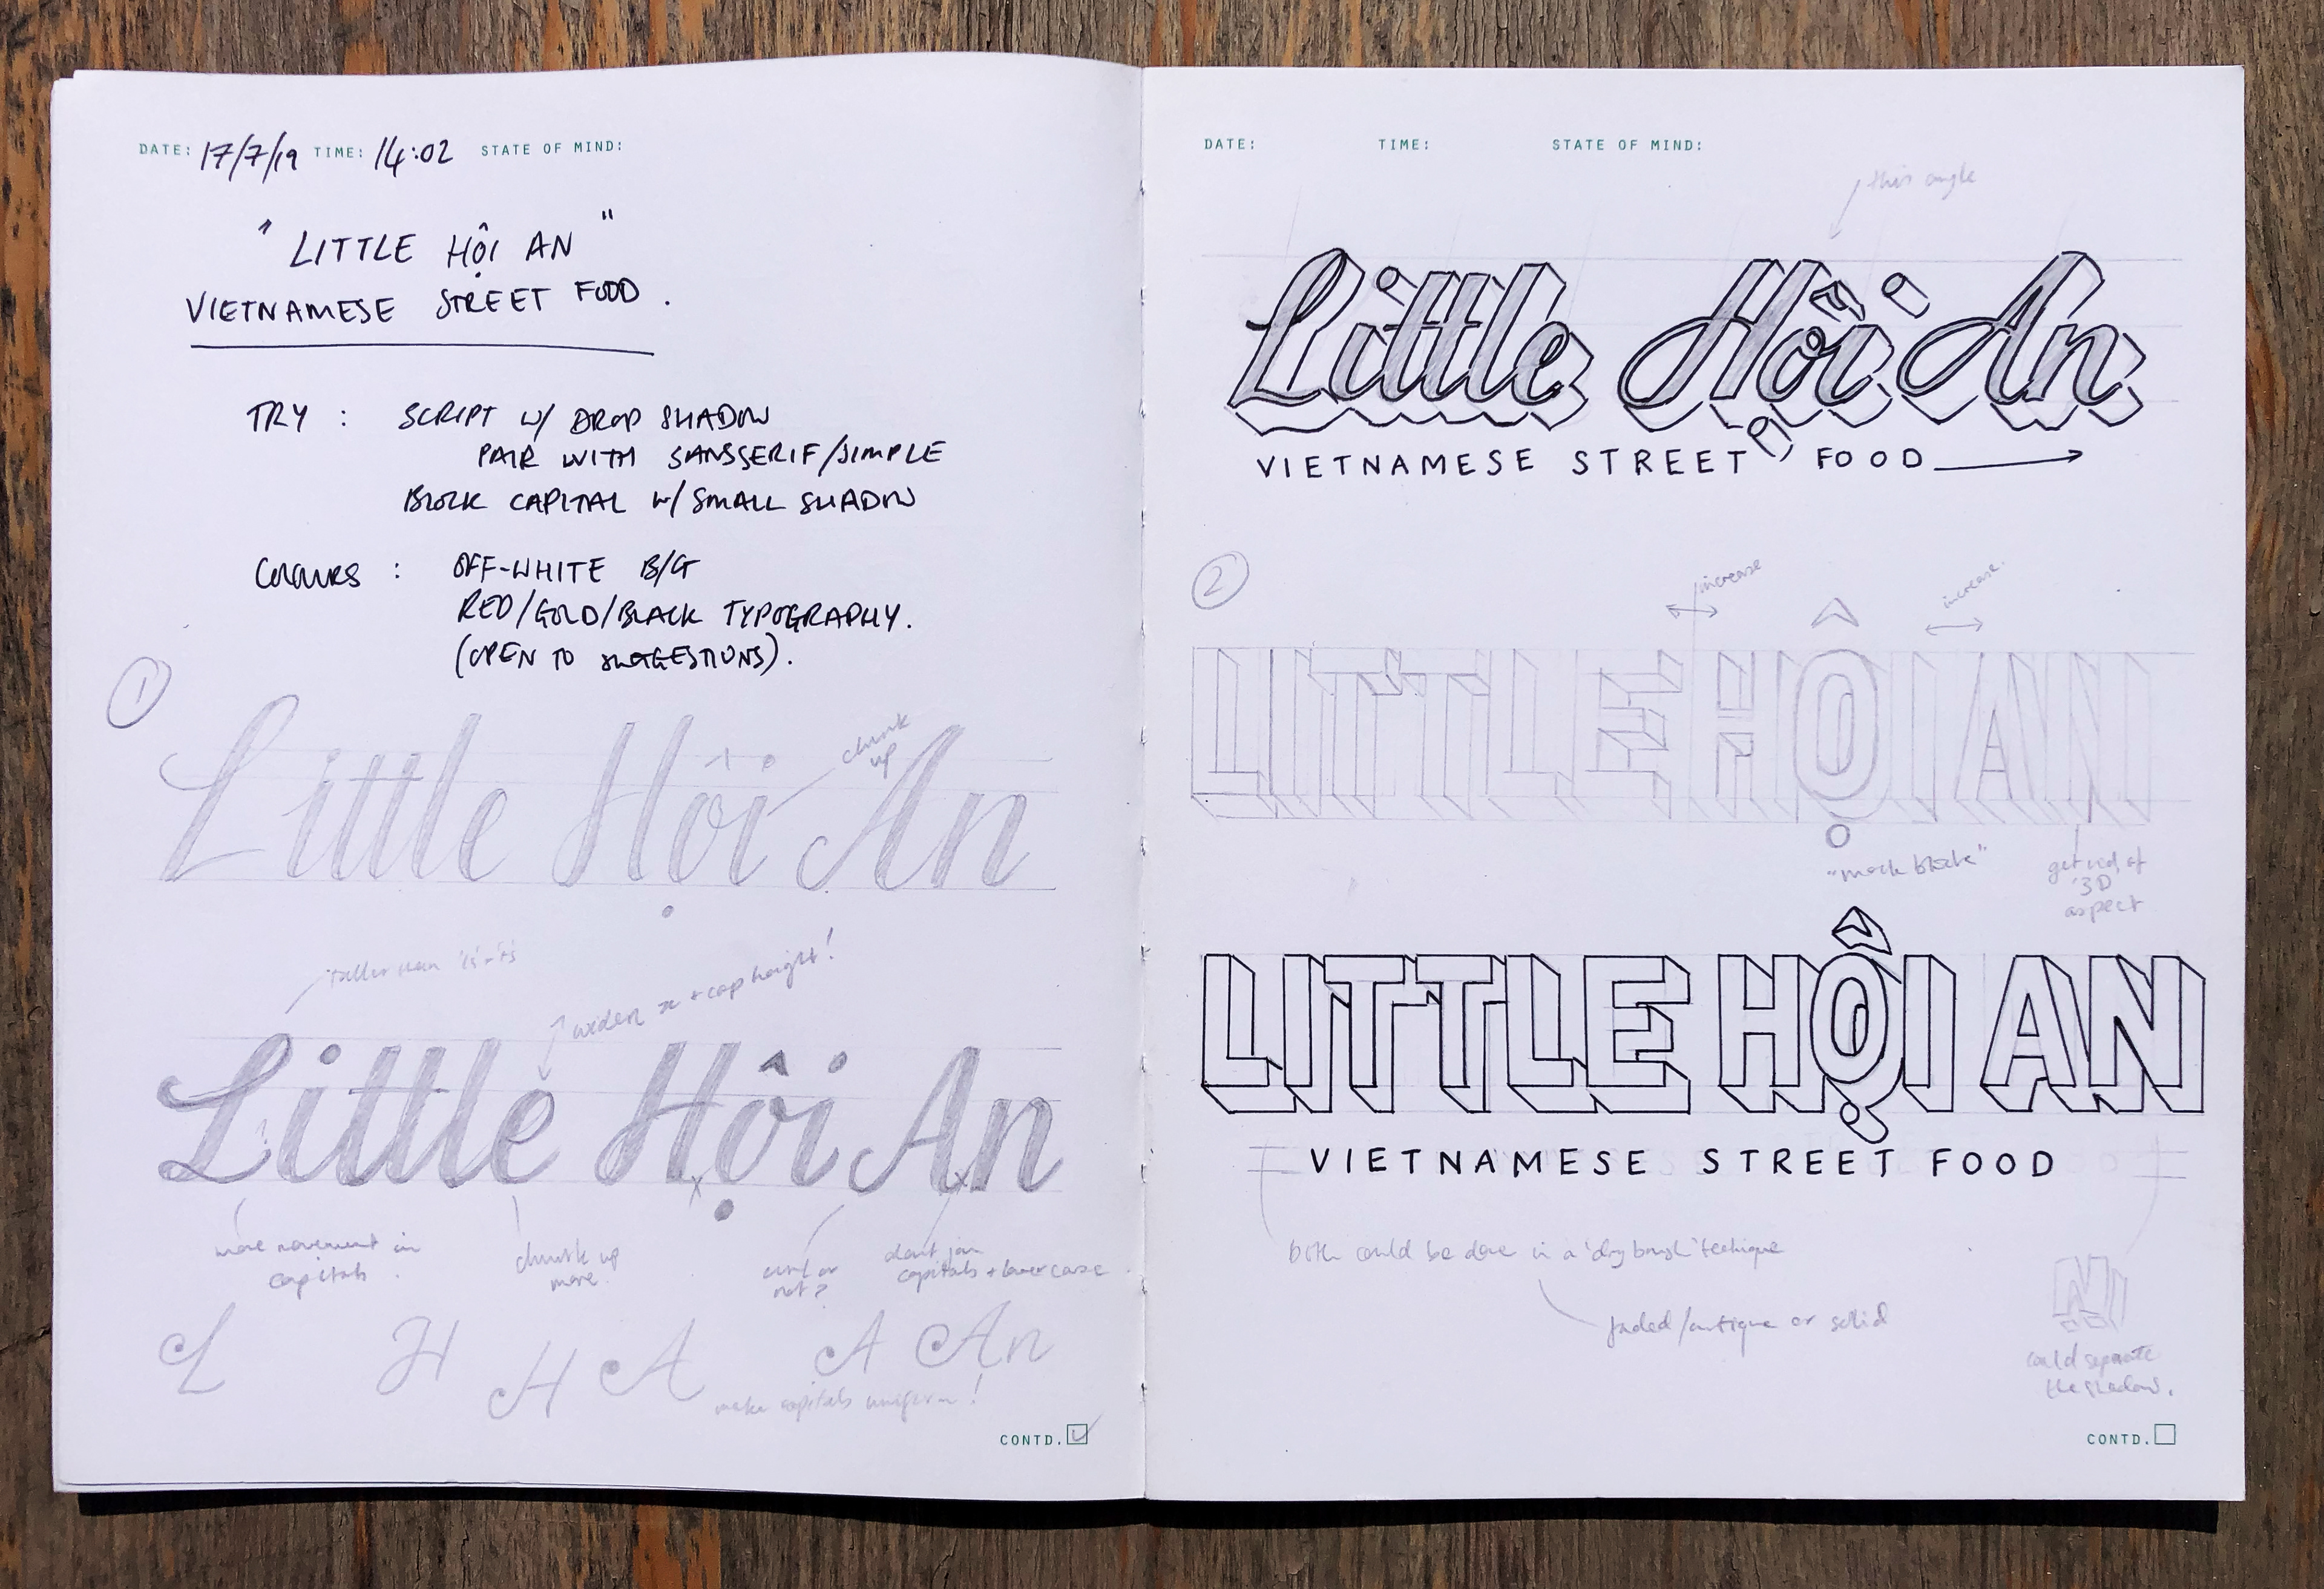 DATE: 17/7/19 TIME: 14:02 STATE OF MIND:
"LITTLE HỘI AN"
VIETNAMESE STREET FOOD.
TRY : SCRIPT W/ DROP SHADOW
PAIR WITH SANSSERIF/SIMPLE
BLOCK CAPITAL W/ SMALL SHADOW
COLOURS : OFF-WHITE B/G
RED/GOLD/BLACK TYPOGRAPHY.
(OPEN TO SUGGESTIONS).
1
chunk
up
Little Hội An
taller than
widen x + cap height!
Little Hội An
more movement in
capitals.
chunk up
more.
curl or
not?
dont join
capitals + lowercase
L H H A A An
make capitals uniform!
CONTD.
DATE: TIME: STATE OF MIND:
this angle
Little Hội An
VIETNAMESE STREET FOOD
2
increase
increase.
LITTLE HỘI AN
"mock block"
get rid of
'3D
aspect
LITTLE HỘI AN
VIETNAMESE STREET FOOD
both could be done in a 'dry brush' technique
faded/antique or solid
N
could separate
the shadow.
CONTD.